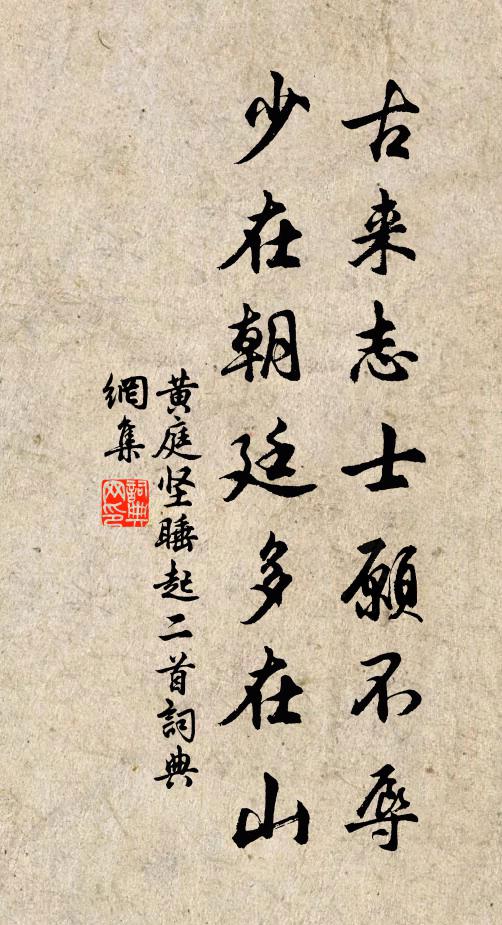 古来志士愿不辱
少在朝廷多在山
黄庭坚睡起二首詞典
網集
詞典
网印